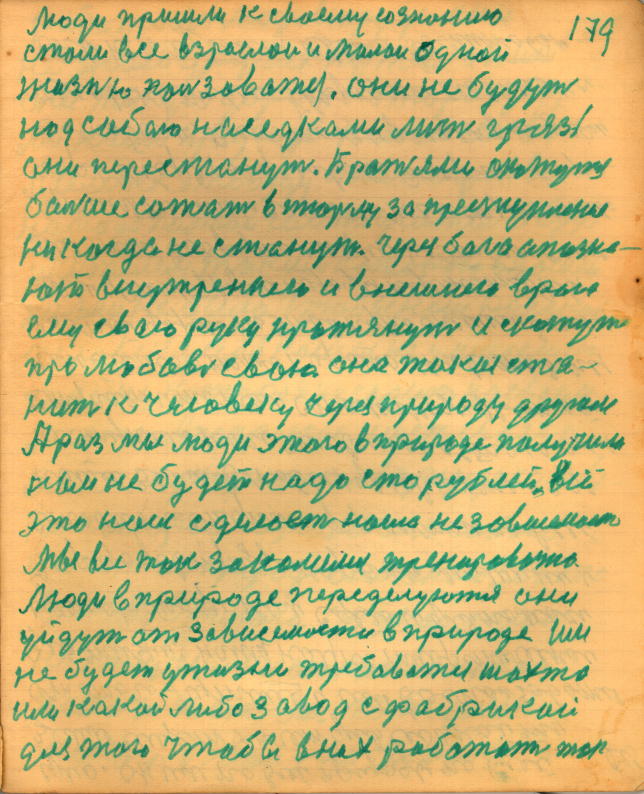 179
Люди пришли к своему сознанию
стали все взрослои и малои одной
жизнью ползоватся. они не будут
под собаю наседками лит грязь
они перестанут. Братями окажутся
балше сожат в тюрму за преступление
никогда не станут. Через бога опозна-
ют внутренего и внешнего врага
ему сваю руку протянут и скажут
про любовь сваю. она такая ста-
нит к человеку через природу другая
А раз мы люди этого в природе получили
нам не будет надо сто рублей,
это нам сделает наша незавсимост
Мы все так закалими тренировать
Люди в природе переделуются они
уйдут от зависемости в природе им
не будет у жизни требоватся шахта
или какой либо завод с фабрикай
для того чтобы в них работат так